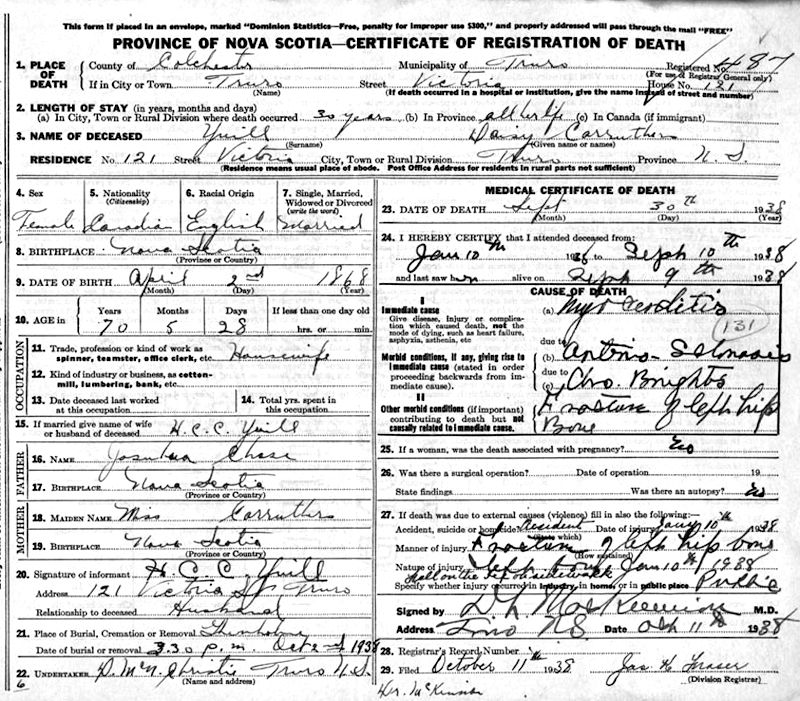 This form if placed in an envelope, marked "Dominion Statistics—Free, penalty for improper use $300," and properly addressed will pass through the mail "FREE"
PROVINCE OF NOVA SCOTIA—CERTIFICATE OF REGISTRATION OF DEATH
1. PLACE OF DEATH County of Colchester Municipality of Truro Registered No 487
(For use of Registrar General only)
If in City or Town Truro Street Victoria House No. 121
(Name) (If death occurred in a hospital or institution, give the name instead of street and number)
2. LENGTH OF STAY (in years, months and days)
(a) In City, Town or Rural Division where death occurred 30 years (b) In Province all her life (c) In Canada (if immigrant)
3. NAME OF DECEASED Yuill Daisy Carruthers
(Surname) (Given name or names)
RESIDENCE No. 121 Street Victoria City, Town or Rural Division Truro Province N. S.
(Residence means usual place of abode. Post Office Address for residents in rural parts not sufficient)
4. Sex 5. Nationality (Citizenship) 6. Racial Origin 7. Single, Married, Widowed or Divorced (write the word)
Female Canadian English Married
8. BIRTHPLACE Nova Scotia
(Province or Country)
9. DATE OF BIRTH April 2nd 1868
(Month) (Day) (Year)
10. AGE in Years Months Days If less than one day old
70 5 28 hrs. or min.
OCCUPATION
11. Trade, profession or kind of work as spinner, teamster, office clerk, etc. Housewife
12. Kind of industry or business, as cotton-mill, lumbering, bank, etc.
13. Date deceased last worked at this occupation 14. Total yrs. spent in this occupation
15. If married give name of wife or husband of deceased H. C. C. Yuill
FATHER
16. NAME Joshua Chase
17. BIRTHPLACE Nova Scotia
(Province or Country)
MOTHER
18. MAIDEN NAME Miss Carruthers
19. BIRTHPLACE Nova Scotia
(Province or Country)
20. Signature of informant H. C. C. Yuill
Address 121 Victoria St Truro
Relationship to deceased Husband
21. Place of Burial, Cremation or Removal
Date of burial or removal 3.30 p.m. Oct 2nd 1938
22. UNDERTAKER Christie Truro N.S.
(Name and address)
6
MEDICAL CERTIFICATE OF DEATH
23. DATE OF DEATH Sept 30th 1938
(Month) (Day) (Year)
24. I HEREBY CERTIFY that I attended deceased from:
Jan 10th 19 to Sept 10th 1938
and last saw her alive on Sept 9th 1938
CAUSE OF DEATH
I
Immediate cause
Give disease, injury or complication which caused death, not the mode of dying, such as heart failure, asphyxia, asthenia, etc
(a) Myocarditis
131
due to
Morbid conditions, if any, giving rise to immediate cause (stated in order proceeding backwards from immediate cause).
(b) Arterio-Sclerosis
due to
(c) Chro. Brights
II
Other morbid conditions (if important) contributing to death but not causally related to immediate cause.
Fracture of left hip
Bone
25. If a woman, was the death associated with pregnancy? No
26. Was there a surgical operation? Date of operation 19
State findings Was there an autopsy? No
27. If death was due to external causes (violence) fill in also the following:—
Accident, suicide or homicide? Accident Date of injury Jany 10th 1938
(State which)
Manner of injury Fracture of left hip bone
(How sustained)
Nature of injury Jan 10th 1938
Specify whether injury occurred in industry, in home, or in public place Public
Signed by M.D.
Address Truro N.S. Date Oct 11th 1938
28. Registrar's Record Number
29. Filed October 11th 1938 Jas H Fraser
(Division Registrar)
Dr. McKinnon